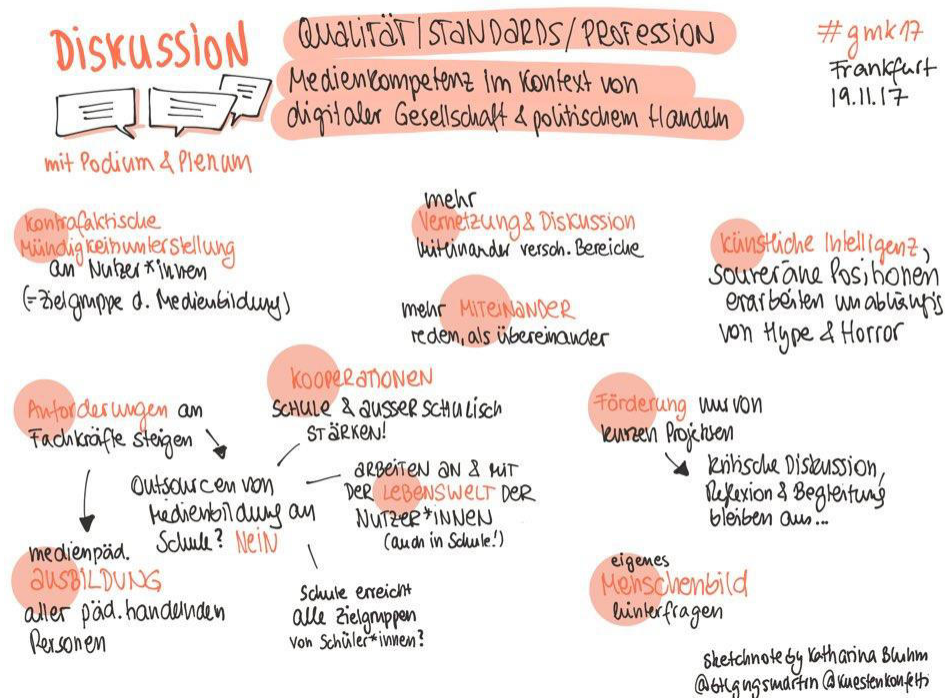 DISKUSSION
mit Podium & Plenum
QUALITÄT/STANDARDS/PROFESSION
Medienkompetenz im Kontext von
digitaler Gesellschaft & politischem Handeln
#gmk17
Frankfurt
19.11.17
kontrafaktische
Mündigkeitsunterstellung
an Nutzer*innen
(=Zielgruppe d. Medienbildung)
mehr
Vernetzung & Diskussion
miteinander versch. Bereiche
mehr MITEINANDER
reden, als übereinander
Künstliche Intelligenz,
souveräne Positionen
erarbeiten unabhängig
von Hype & Horror
Anforderungen an
Fachkräfte steigen
medienpäd.
AUSBILDUNG
aller päd. handelnden
Personen
Outsourcen von
Medienbildung an
Schule? NEIN
KOOPERATIONEN
SCHULE & AUSSERSCHULISCH
STÄRKEN!
ARBEITEN AN & MIT
DER LEBENSWELT DER
NUTZER*INNEN
(auch in Schule!)
Schule erreicht
alle Zielgruppen
von Schüler*innen?
Förderung nur von
kurzen Projekten
kritische Diskussion,
Reflexion & Begleitung
bleiben aus...
eigenes
Menschenbild
hinterfragen
Sketchnote by Katharina Bluhm
@kuestenkonfetti